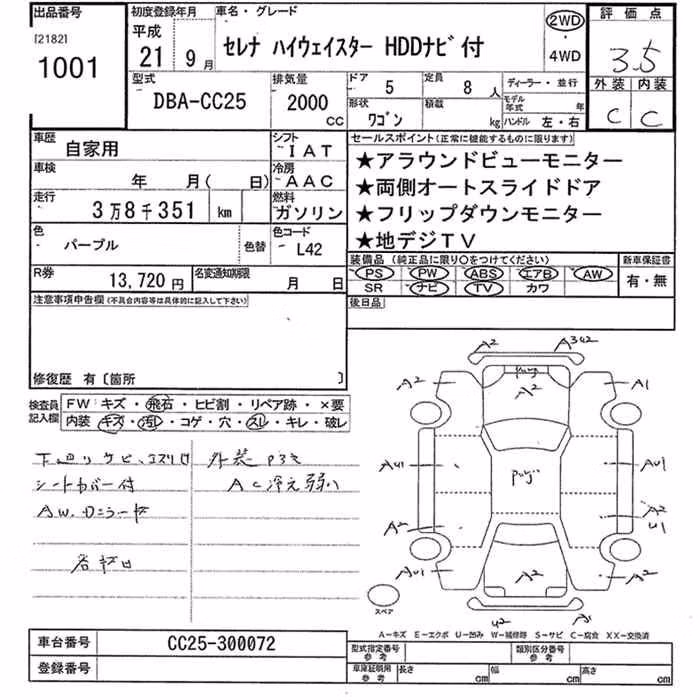 出品番号
[2182]
1001
初度登録年月
平成
21 9月
車名・グレード
セレナ ハイウェイスター HDDナビ付
2WD
・
4WD
評価点
3.5
外装 内装
C C
型式
DBA-CC25
排気量
2000
CC
ドア
5
定員
8 人
形状
ワゴン
積載
kg
ディーラー・並行
モデル年式 年
ハンドル 左・右
車歴
自家用
シフト
IAT
車検
年 月( 日)
冷房
AAC
走行
3万8千351 km
燃料
ガソリン
色
パープル
色替
色コード
L42
R券
13,720円
名変通知期限
月 日
セールスポイント(正常に機能するものに限ります)
★アラウンドビューモニター
★両側オートスライドドア
★フリップダウンモニター
★地デジTV
装備品 (純正品に限り○をつけてください)
PS PW ABS エアB AW
SR ナビ TV カワ
新車保証書
有・無
後日品
注意事項申告欄(不具合内容等は具体的に記入して下さい)
修復歴 有〔箇所 〕
検査員記入欄
FW キズ・飛石・ヒビ割・リペア跡・×要
内装 キズ・汚レ・コゲ・穴・スレ・キレ・破レ
下廻りサビ、コスリ
シートカバー付
外装 Pキズ
AC冷え弱い
A2 A342
A2 A2 A1
AU1 AU1
A2 A2
U1
AU1 A2 A2
U2
スペア
A−キズ E−エクボ U−凹み W−補修跡 S−サビ C−腐食 XX−交換済
車台番号
CC25-300072
登録番号
型式指定番号
参考
類別区分番号
参考
車庫証明用
参考
長さ cm 幅 cm 高さ cm